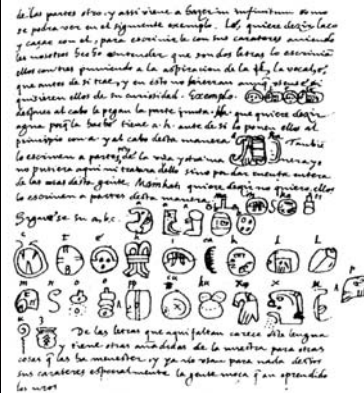 de las partes otro, y assi viene a hazer in infinitum como
se podra ver en el siguiente exemplo. Lé, quiere dezir laço
y caçar con el, para escrivirle con sus carateres aviendo
les nosotros hecho entender que son dos letras lo escrivian
ellos con tres puniendo a la aspiracion de la l, la vocal e,
que antes de si trae, y en esto no hierran
quisieren ellos de su curiosidad. Exemplo.
despues al cabo le pegan la parte junta. Ha que quiere dezir
agua porq la hache tiene a.h. ante de si lo ponen ellos al
principio con a y al cabo desta manera Tambie
lo escriven a partes de la una y otra manera yo
no pusiera aqui ni tratara dello sino por dar cuenta entera
de las cosas desta gente. quiere dezir no quiero, ellos
lo escriven a partes desta manera
Siguese su a, b, c.
c e h i ca k l l
m n o o pp cu ku x x p
De las letras que aqui faltan carece esta lengua
y tiene otras añadidas de la nuestra para otras
cosas q las ha menester, y ya no usan para nada destos
sus carateres especialmente la gente moça q an aprendido
los nros